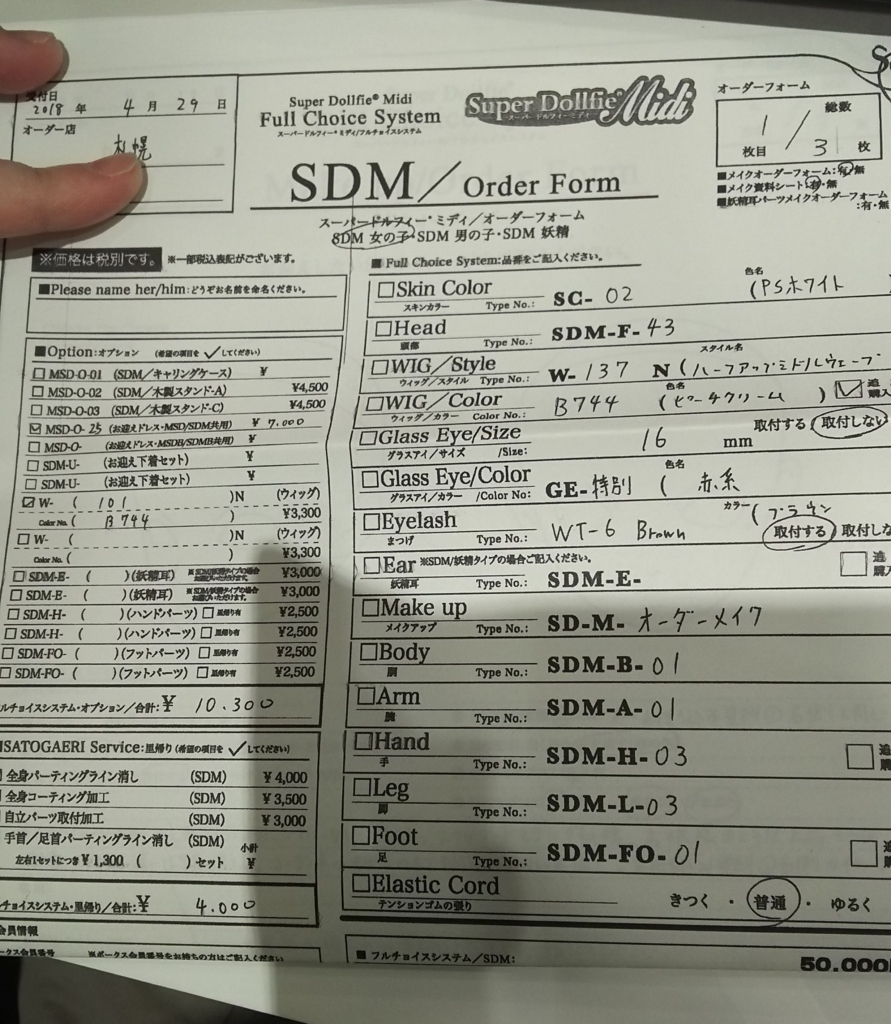 受付日
2018 年 4 月 29 日
オーダー店
札幌
Super Dollfie® Midi
Full Choice System
スーパードルフィー・ミディ/フルチョイスシステム
Super Dollfie® Midi
スーパードルフィーミディ
SDM/Order Form
スーパードルフィー・ミディ/オーダーフォーム
SDM 女の子・SDM 男の子・SDM 妖精
オーダーフォーム
総数
1 / 31 枚
枚目
■メイクオーダーフォーム:有・無
■メイク資料シート:有・無
■妖精耳パーツメイクオーダーフォーム
:有・無
※価格は税別です。 ※一部税込表記がございます。
■Please name her/him:どうぞお名前を命名ください。
■Option:オプション (希望の項目を✓してください)
□MSD-O-01 (SDM/キャリングケース) ¥
□MSD-O-02 (SDM/木製スタンド-A) ¥4,500
□MSD-O-03 (SDM/木製スタンド-C) ¥4,500
☑MSD-O-25 (お迎えドレス・MSD/SDM共用) ¥ 7.000
□MSD-O- (お迎えドレス・MSDB/SDMB共用) ¥
□SDM-U- (お迎え下着セット) ¥
□SDM-U- (お迎え下着セット) ¥
☑W- ( 101 )N (ウィッグ)
Color No. ( B744 ) ¥3,300
□W- ( )N (ウィッグ)
Color No. ( ) ¥3,300
□SDM-E- ( )(妖精耳) ¥3,000
□SDM-E- ( )(妖精耳) ¥3,000
□SDM-H- ( )(ハンドパーツ) □里帰り有 ¥2,500
□SDM-H- ( )(ハンドパーツ) □里帰り有 ¥2,500
□SDM-FO- ( )(フットパーツ) □里帰り有 ¥2,500
□SDM-FO- ( )(フットパーツ) □里帰り有 ¥2,500
ルチョイスシステム・オプション/合計:¥ 10.300
ISATOGAERI Service:里帰り(希望の項目を✓してください)
全身パーティングライン消し (SDM) ¥4,000
全身コーティング加工 (SDM) ¥3,500
自立パーツ取付加工 (SDM) ¥3,000
手首/足首パーティングライン消し (SDM) 小計
左右1セットにつき¥1,300 ( )セット ¥
ルチョイスシステム・里帰り/合計:¥ 4.000
会員情報
ークス会員番号 ※ボークス会員番号をお持ちの方はご記入
■Full Choice System:品番をご記入ください。
□Skin Color
スキンカラー Type No.: SC- 02 色名 (PSホワイト
□Head
頭部 Type No.: SDM-F-43
□WIG/Style
ウィッグ/スタイル Type No.: W-137 N スタイル名 (ハーフアップミドルウェーブ
□WIG/Color
ウィッグ/カラー Color No.: B744 色名 (ピーチクリーム) ☑追
購入
□Glass Eye/Size
グラスアイ/サイズ /Size: 16 mm 取付する 取付しない
□Glass Eye/Color
グラスアイ/カラー /Color No: GE-特別 色名 ( 赤系
□Eyelash
まつげ Type No.: WT-6 Brown カラー (ブラウン
取付する 取付しな
□Ear ※SDM/妖精タイプの場合ご記入ください。
妖精耳 Type No.: SDM-E- □追
購入
□Make up
メイクアップ Type No.: SD-M- オーダーメイク
□Body
胴 Type No.: SDM-B-01
□Arm
腕 Type No.: SDM-A-01
□Hand
手 Type No.: SDM-H-03 □追
購
□Leg
脚 Type No.: SDM-L-03
□Foot
足 Type No.: SDM-FO-01 □追
購
□Elastic Cord
テンションゴムの張り きつく ・ 普通 ・ ゆるく
■フルチョイスシステム/SDM:
50.000